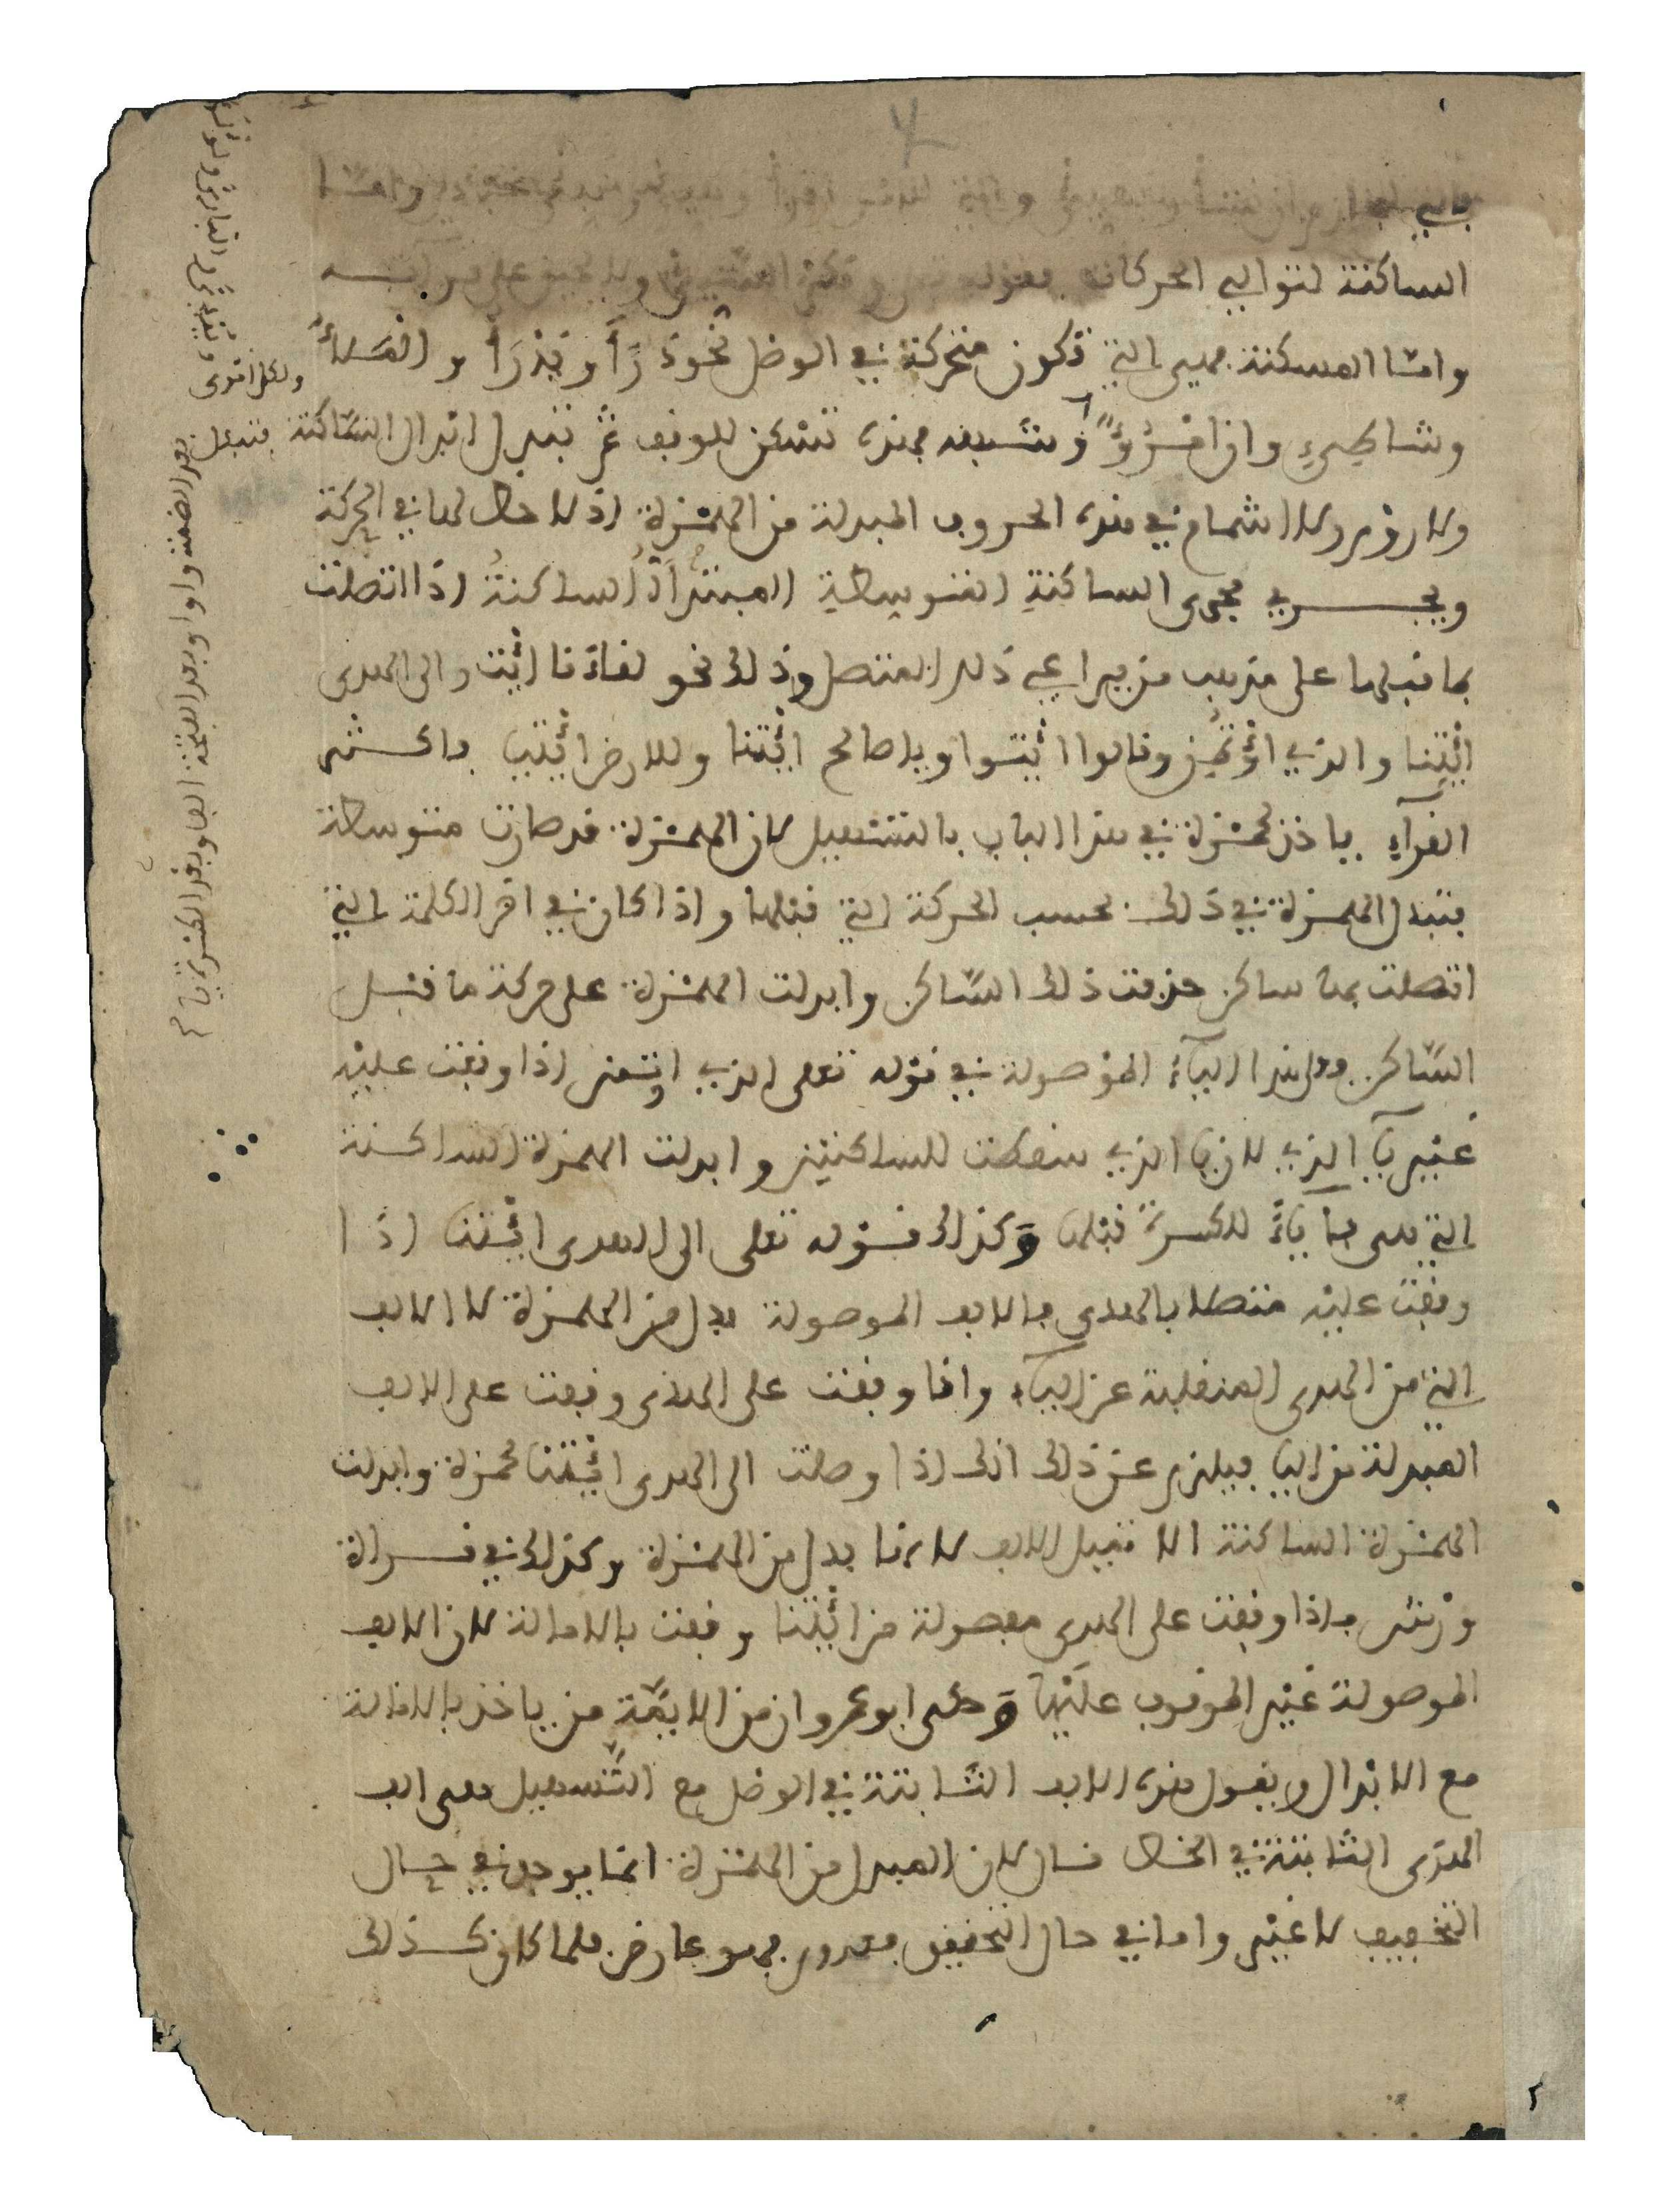 الساكنة لتوالي الحركات
واما المسكنة فهي التي تكون متحركة في الوصل نحو ذَرَأَ ويَدْرَأُ والمَلَأُ
وشاطِىءِ وان امْرُؤٌ وشبهه فهذه تسكن للوقف ثم تبدل ابدال السّاكنة فتبدل
ولا روم ولا اشمام في هذه الحروف المبدلة من الهمزة اذ لا حظ لها في الحركة
ويجري مجرى الساكنةِ المتوسطةِ المبتدأةُ الساكنةُ اذا اتصلت
بما قبلها على مذهب من يراعي ذلك المتصل وذلك نحو لقاءنا ائْت والى الهدى
ائْتِنا والذي اؤْتُمِن وقالوا ائْتنا ويا صالح ائْتنا وللارض ائْتيا فاكثر
القرآءِ ياخذ لحمزة في هذا الباب بالتسهيل لان الهمزة قد صارت متوسطة
فتبدل الهمزة في ذلك بحسب الحركة التي قبلها واذا كان في اخر الكلمة التي
اتصلت بها ساكن حذفت ذلك السّاكن وابدلت الهمزة على حركة ما قبل
السّاكن فعلى هذا اليآءُ الموصولة في قوله تعلى الذي اوتمن اذا وقفت عليه
غير يآ الذي لان يا الذي سقطت للساكنين وابدلت الهمزة الساكنة
التي هي فا ياءً للكسرة قبلها وكذلك قوله تعلى الى الهدى ائْتنا اذا
وقفت عليه متصلا بالهدى فالالف الموصولة بدل من الهمزة لا الالف
التي من الهدى المنقلبة عن اليآء واذا وقفت على الهدى وقفت على الالف
المبدلة من اليا فيلزم عن ذلك انك اذا وصلت الى الهدى ائْتنا لحمزة وابدلت
الهمزة الساكنة الا تميل الالف لانها بدل من الهمزة وكذلك في قراة
ورش فاذا وقفت على الهدى مفصولة من ائْتنا وقفت بالامالة لان الالف
الموصولة غير الموقوف عليها وحكى ابو عمرو ان من الايمّة من ياخذ بالامالة
مع الابدال ويقول هذه الالف الثابتة في الوصل مع التّسهيل هي الف
الهدى الثابتة في الخط قال لان المبدل من الهمزة انما يوجد في حال
التخفيف لا غير واما في حال التحقيق فمعدوم فهو عارض فلما كان كذلك
بعد الضمة واوا وبعد الفتحة الفا وبعد الكسرة يآ